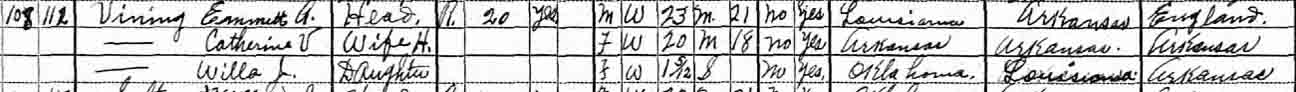 108 112 Vining Emmett A. Head R. 20 Yes M W 23 M. 21 no Yes Louisiana Arkansas England.
— Catherine V Wife H. F W 20 M 18 no Yes Arkansas Arkansas. Arkansas
— Willa J. Daughter F W 1 5/12 S No Yes. Oklahoma. Louisiana Arkansas